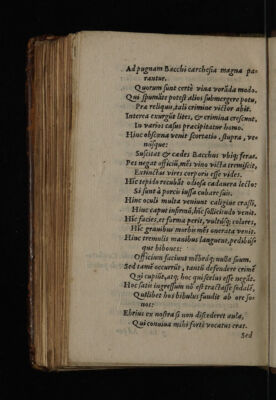 Ad pugnam Bacchi carchesia magna pa-
rantur.
Quorum sunt certè vina vorãda modo.
Qui spumãte potest alios submergere potu,
Præ reliquis, tali crimine victor abit.
Interea exurgũt lites, & crimina crescunt,
In varios casus præcipitatur homo.
Hinc obscœna venit scortatio, stupra, ve-
nusque:
Suscitat & cædes Bacchus vbiq; feras.
Pes negat officiũ, mẽs vino victa tremiscit,
Extinctas vires corporis esse vides.
Hic tepido recubãt odiosa cadauera lecto:
Si sunt à porcis iussa cubare suis.
Hinc oculi multa veniunt caligine crassi,
Hinc caput infirmũ, hic sollicitudo venit.
Hic facies, et forma perit, vultusq; colores,
Hic grauibus morbis mẽs onerata venit.
Hinc tremulis manibus languent, pedibusque
que bibones:
Officium faciunt mẽbraq; nulla suum.
Sed tamẽ occurrit, tantũ defendere crimẽ
Qui cupiũt, atq; hoc qui scelus esse negãt.
Hoc satis ingressum nõ est tractasse sodalẽ,
Quilibet hos bibulus suudit ab ore so-
nos:
Ebrius ex nostra si non discederet aula,
Qui conuiua mihi forti vocatus erat.
Sed